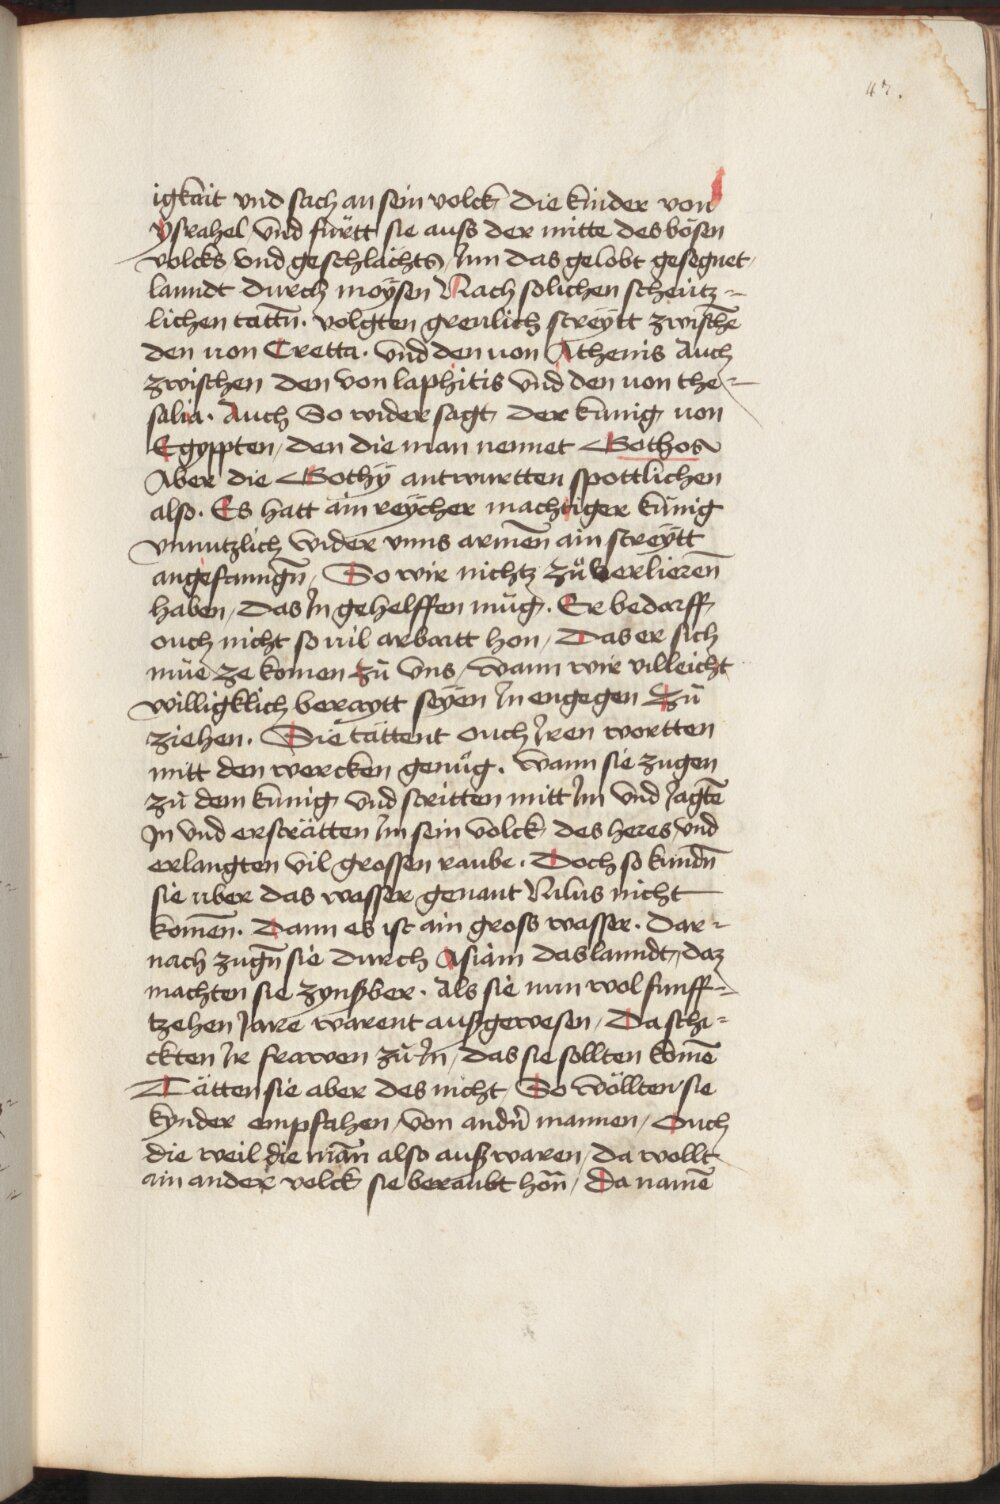 47.
igkait vnd sach an sein volck die kinder von
ysrahel vnd fürtt sie auss der mitte des bösen
volcks vnd geschlächts, Jnn das gelobt gesegnet
lanndt durch moÿsen Nach solichen scheütz=
lichen tattn̄. volgten grenlich streÿtt zwischē
den uon Cretta. vnd den uon Athenis Auch
zwischen den von laphitis vnd den uon the=
salia. Auch So widersagt der künig uon
Egyppten, den die man nennet Gothos
Aber die Gothÿ antwurtten spottlichen
also. Es hatt ain reÿcher machtiger künig
vnnutzlich wider vnns armen̄ ain streÿtt
angefanngn̄, So wir nichtz zů verlieren̄
haben, Das Jn gehelffen müg. Er bedarff
ouch nicht so uil arbaitt hon, Das er sich
müe ze komen zů vns, wann wir villeicht
willigklich beraytt seÿen Jn engegen zů
ziehen. Sie tättent ouch Jren wortten
mitt den wercken genůg. wann sie zugen
zů dem künig vnd stritten mitt Jm vnd Jagtē
Jn vnd erstrătten Jm sein volck des heres vnd
erlangten vil grossen raube. Doch so kundn̄
sie uber das wasser genant Nilus nicht
komen̄. Dann es ist ain gross wasser. Dar=
nach zugn̄ sie durch Asiam das lanndt, daz
machten sie zynßber. Als sie nun wol funff=
tzehen Jare warent außgewesen, Da schi=
ckten Jr frawen zů Jn, das sie sollten komē
Tätten sie aber des nicht, So wöllten sie
kynder empfahen, von andn̄ mannen, Ouch
die weil die man̄ also auß waren, da wollt
ain ander volck sie beraubt hon̄, Da namē